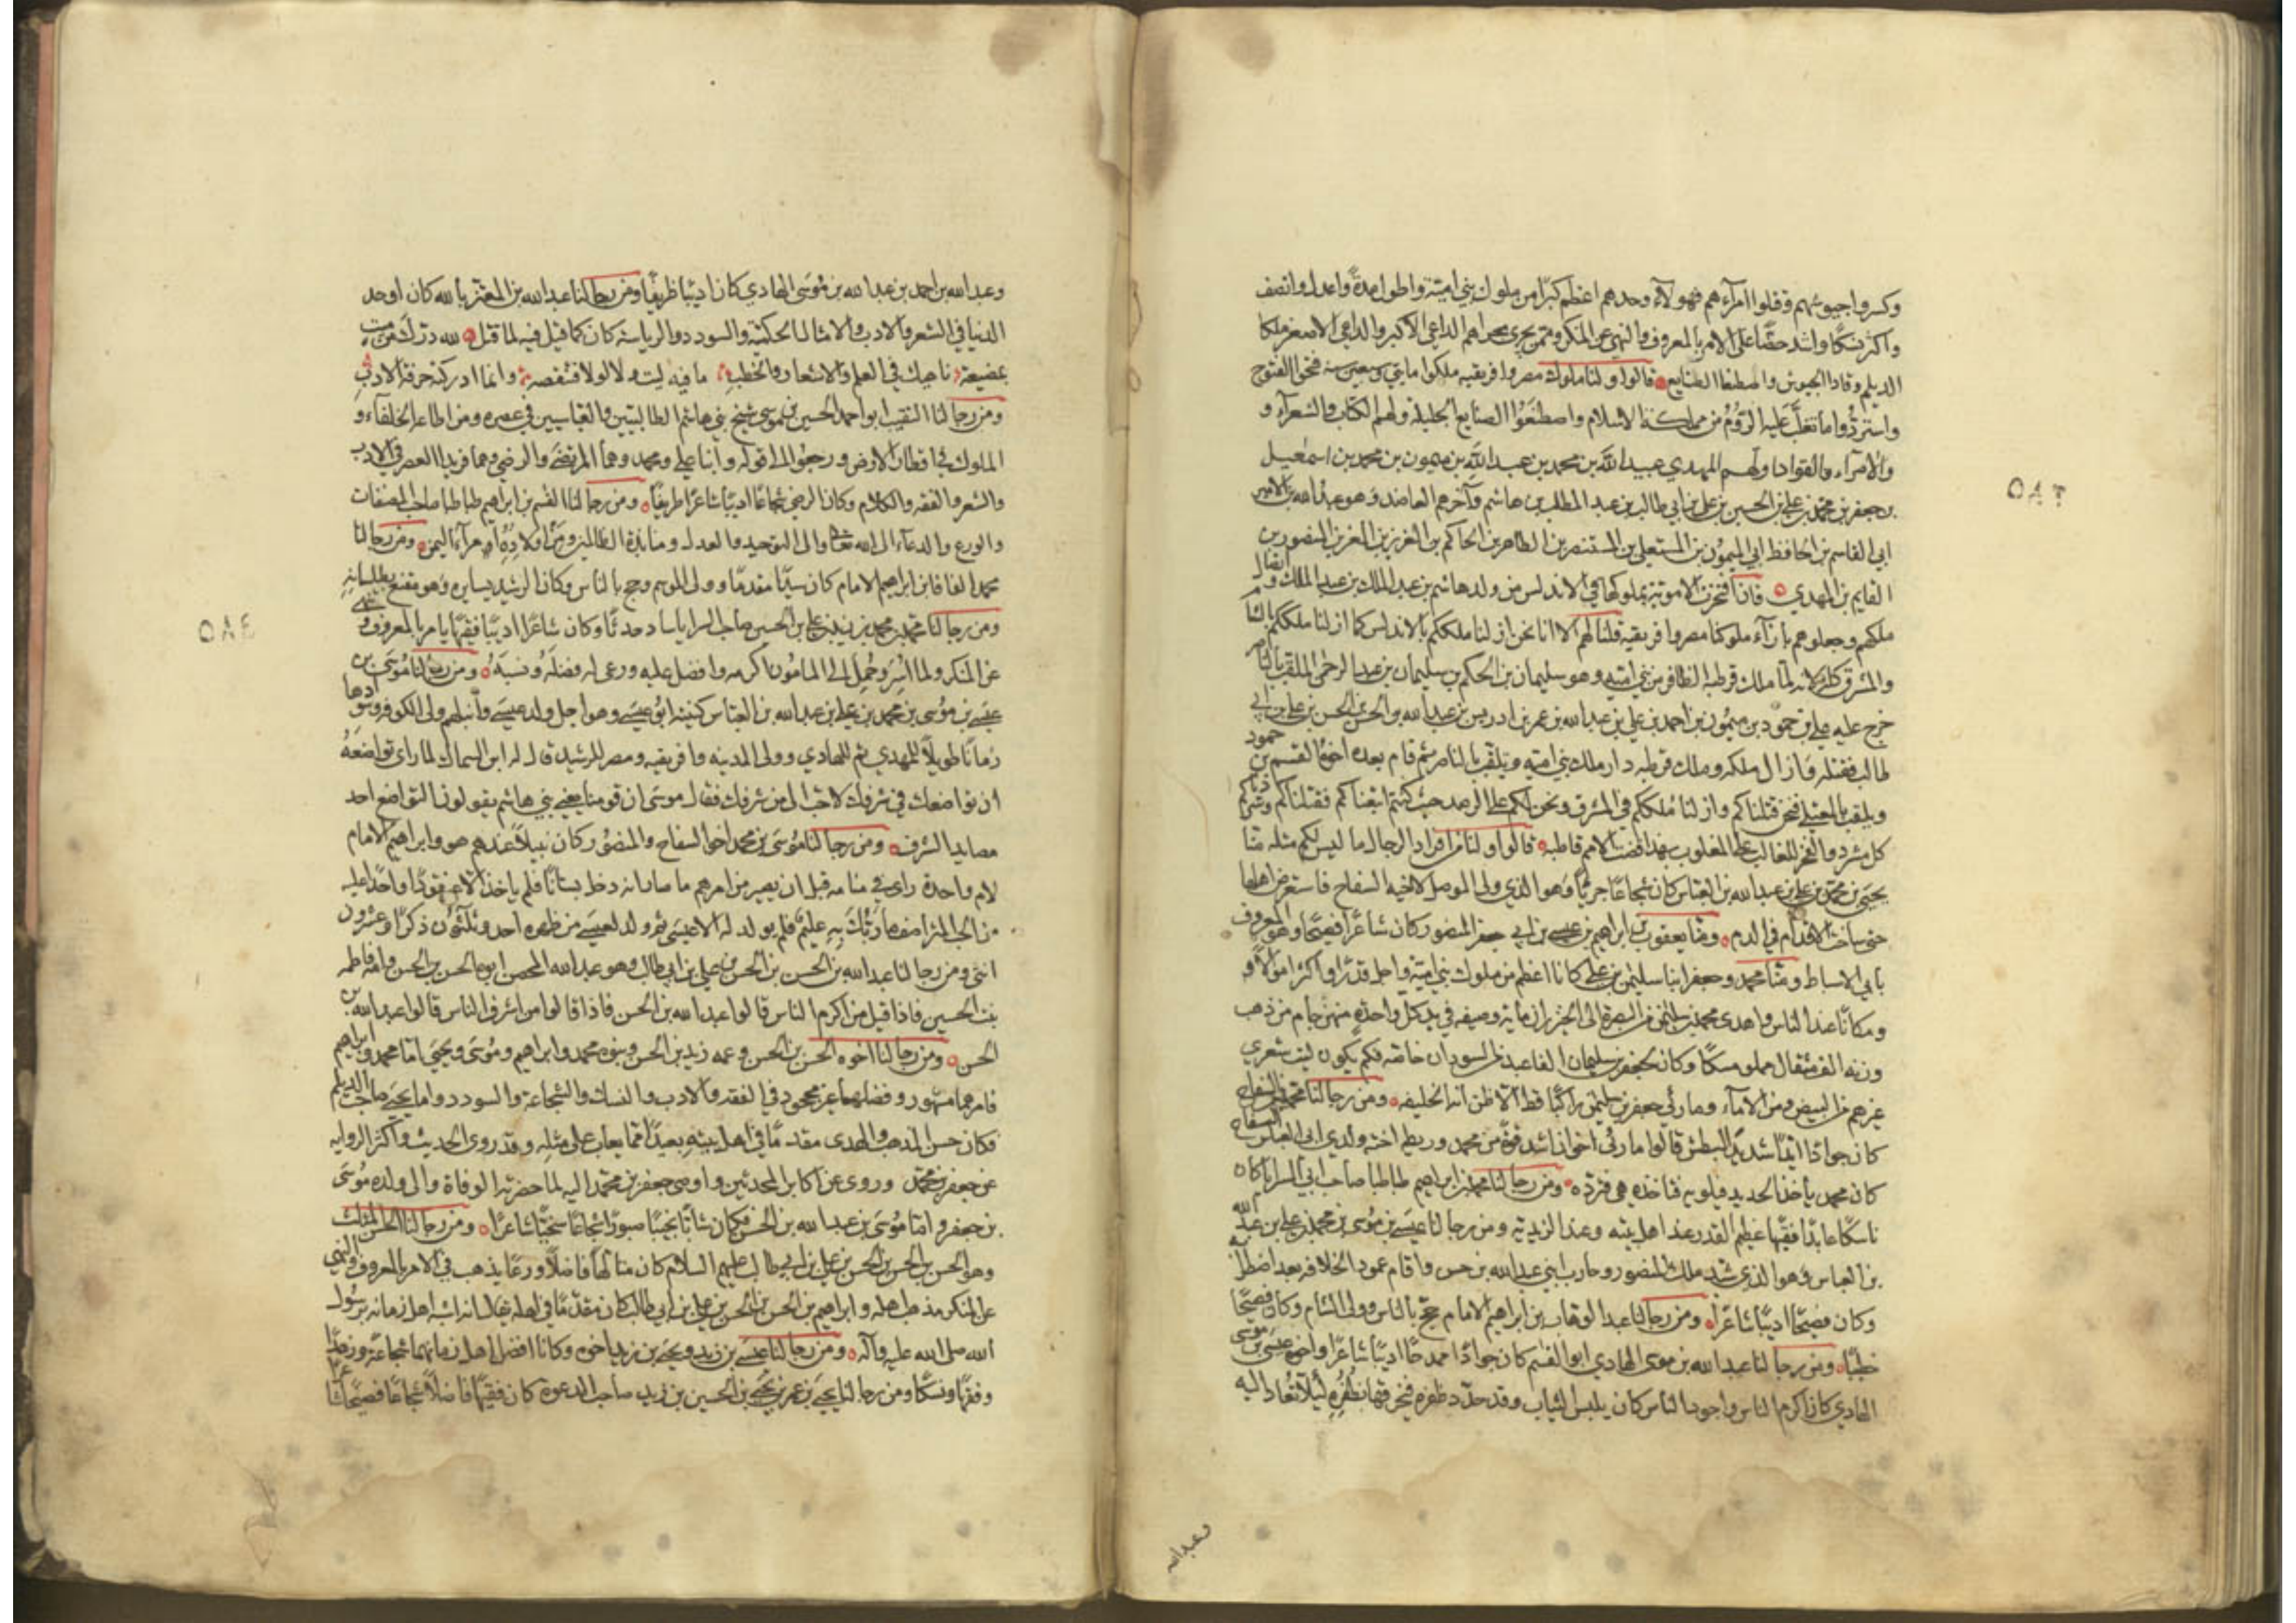 وكسروا جيوشهم وقتلوا امرآءهم فهولاء وحدهم اعظم كبرا من ملوك بني امية واطول مدة واعدل وانصف
واكثر نسكا واشد حضا على الامر بالمعروف والنهي عن المنكر وممن يجري مجراهم الداعي الاكبر والداعي الاصغر ملكا
الديلم وقادا الجيوش واصطنعا الصنايع قالوا ولنا ملوك مصر وافريقيه ملكوا مايتي وسبعين سنه فتحوا الفتوح
واستردوا ما تغلب عليه الروم من مملكة الاسلام واصطنعوا الصنايع الجليلة ولهم الكتاب والشعرآء و
والامرآء والقواد اولهم المهدي عبيد الله بن محمد بن عبد الله بن ميمون بن محمد بن اسمعيل
بن جعفر بن محمد بن علي بن الحسين بن علي بن ابي طالب بن عبد المطلب بن هاشم وآخرهم العاضد وهو عبد الله بن الامير
ابي القاسم بن الحافظ ابي الميمون بن المستعلي بن المستنصر بن الظاهر بن الحاكم بن العزيز بن المعز بن المنصور بن
القايم بن المهدي فان افتخرت الاموية بملوكها في الاندلس من ولد هاشم بن عبد الملك بن عبد الملك و
ملكهم وجعلوهم بازآء ملوكنا مصر وافريقيه قلنا لهم الا انا نحن ازلنا ملككم بالاندلس كما ازلنا ملككم بالشام
والمشرق كله لانه لما ملك قرطبة الظافر من بني امية وهو سليمان بن الحكم بن سليمان بن عبد الرحمن الملقب بالناصر
خرج عليه علي بن حمود بن ميمون بن احمد بن علي بن عبد الله بن عمر بن ادريس بن عبد الله بن الحسن بن الحسن بن علي بن ابي
طالب فقتله وازال ملكه وملك قرطبه دار ملك بني امية ويلقب بالناصر ثم قام بعده اخوه القسم بن حمود
ويلقب بالمعتلي فنحن قتلناكم وازلنا ملككم في المشرق ونحن لكم على الرصد حيث كنتم اتبعناكم فقتلناكم وشردناكم
كل مشرد والفخر للغالب على المغلوب بهذا قضت الامم قاطبه قالوا ولنا من افراد الرجال ما ليس لكم مثله منا
يحيى بن محمد بن علي بن عبد الله بن العباس كان شجاعا جريا وهو الذي ولى الموصل لاخيه السفاح فاستعرض اهلها
حتى ساخت الاقدام في الدم ومنا يعقوب بن ابراهيم بن عيسى بن ابي جعفر المنصور كان شاعرا فصيحا وهو المعروف
بابي الاسباط ومنا محمد وجعفر ابنا سليمن بن علي كانا اعظم من ملوك بني امية واجل قدرا واكثر اموالا و
ومكانا عند الناس واهدى محمد بن سليمن من البصرة الى الخيزران ماية وصيفه في يد كل واحدة منهن جام من ذهب
وزنه الف مثقال مملو مسكا وكان لجعفر بن سليمان الفا عبد من السودان خاصه فكم يكون ليت شعري
غيرهم من البيض ومن الامآء وما رئي جعفر بن سليمن راكبا قط الا ظن انه الخليفه ومن رجالنا محمد بن السفاح
كان جوادا ايدا شديد البطش قالوا ما رئي اخوان اشد قوة من محمد وريطه اخته ولدي ابي العباس السفاح
كان محمد ياخذ الحديد فيلويه فتاخذه هي فترده ومن رجالنا محمد بن ابراهيم طباطبا صاحب ابي السرايا كان
ناسكا عابدا فقيها عظيم القدر عند اهل بيته وعند الزيديه ومن رجالنا عيسى بن موسى بن محمد بن علي بن عبد الله
بن العباس وهو الذي شيد ملك المنصور وحارب ابني عبد الله بن حسن واقام عمود الخلافه بعد اضطرابه
وكان فصيحا اديبا شاعرا ومن رجالنا عبد الوهاب بن ابراهيم الامام حج بالناس وولى الشام وكان فصيحا
خطيبا ومن رجالنا عبد الله بن موسى الهادي ابو القسم كان جوادا ممدحا اديبا شاعرا واخوه عيسى بن موسى
الهادي كان اكرم الناس واجود الناس كان يلبس الثياب وقد حدد ظفره فيخرقها بظفره ليلا تعاد اليه
وعبد الله
٥٨٣
وعبد الله بن احمد بن عبد الله بن موسى الهادي كان اديبا ظريفا ومن رجالنا عبد الله بن المعتز بالله كان اوحد
الدنيا في الشعر والادب والامثال الحكمية والسودد والرياسة كان كما قيل فيه لما قتل لله درك من ميت
بمضيعة ناهيك في العلم والاشعار والخطب ما فيه ليت ولا لولا فتنقصه وانما ادركته حرفة الادب
ومن رجالنا النقيب ابو احمد الحسين بن موسى شيخ بني هاشم الطالبيين والعباسيين في عصره ومن اطاعه الخلفآء و
الملوك في اقطار الارض ورجعوا الى قوله وابناه علي ومحمد وهما المرتضى والرضي وهما فريدا العصر في الادب
والشعر والفقه والكلام وكان الرضي شجاعا اديبا شاعرا ظريفا ومن رجالنا القسم بن ابراهيم طباطبا صاحب المصنفات
والورع والدعآء الى الله تعالى والى التوحيد والعدل ومنابذة الظالمين ومن اولاده امرآء اليمن ومن رجالنا
محمد الفافا بن ابراهيم الامام كان سيدا مقدما وولى الموسم وحج بالناس وكان الرشيد يسايره وهو مقنع بطيلسانه
ومن رجالنا محمد بن محمد بن زيد بن علي بن الحسين صاحب السرايا ساد حدثا وكان شاعرا اديبا فقيها يامر بالمعروف وينهى
عن المنكر ولما اسر وحمل الى المامون اكرمه وافضل عليه ورعى له فضله ونسبه ومن رجالنا موسى بن
عيسى بن موسى بن محمد بن علي بن عبد الله بن العباس كنيته ابو عيسى وهو اجل ولد عيسى وانبلهم ولى الكوفه وسوادها
زمانا طويلا للمهدي ثم للهادي وولى المدينه وافريقيه ومصر للرشيد قال له ابن السماك لما راى تواضعه
ان تواضعك في شرفك لاحب الي من شرفك فقال موسى ان قومنا يعني بني هاشم يقولون التواضع احد
مصايد الشرف ومن رجالنا موسى بن محمد اخو السفاح والمنصور كان نبيلا عندهم هو وابراهيم الامام
لام واحدة راى في منامه قبل ان يصير من امرهم ما صار انه دخل بستانا فلم ياخذ الا عنقودا واحدا عليه
من الحب المتراصف ما ربك به عليم فلم يولد له الا عيسى ثم ولد لعيسى من ظهره احد وثلثون ذكرا وعشرون
انثى ومن رجالنا عبد الله بن الحسن بن الحسن بن علي بن ابي طالب وهو عبد الله المحض ابوه الحسن بن الحسن وامه فاطمه
بنت الحسين فاذا قيل من اكرم الناس قالوا عبد الله بن الحسن فاذا قالوا من اشرف الناس قالوا عبد الله بن
الحسن ومن رجالنا اخوه الحسن بن الحسن وعمه زيد بن الحسن وبنوه محمد وابراهيم وموسى ويحيى اما محمد وابراهيم
فامرهما مشهور وفضلهما غير مجحود في الفقه والادب والنسك والشجاعة والسودد واما يحيى صاحب الديلم
فكان حسن المذهب والهدى مقدما في اهل بيته بعيدا مما يعاب على مثله وقد روى الحديث واكثر الروايه
عن جعفر بن محمد وروى عن اكابر المحدثين واوصى جعفر بن محمد اليه لما حضرته الوفاة والى ولده موسى
بن جعفر واما موسى بن عبد الله بن الحسن فكان شابا نجيبا صبورا شجاعا سخيا شاعرا ومن رجالنا الحسن المثلث
وهو الحسن بن الحسن بن الحسن بن علي بن ابي طالب عليهم السلام كان متالها فاضلا ورعا يذهب في الامر بالمعروف والنهي
عن المنكر مذهب اهله وابراهيم بن الحسن بن الحسن بن علي بن ابي طالب كان مقدما في اهله يقال انه اشبه اهل زمانه برسول
الله صلى الله عليه وآله ومن رجالنا عيسى بن زيد ويحيى بن زيد اخوه وكانا افضل اهل زمانهما شجاعة وزهدا
وفقها ونسكا ومن رجالنا يحيى بن عمر بن يحيى بن الحسين بن زيد صاحب الدعوة كان فقيها فاضلا شجاعا فصيحا شاعرا
٥٨٤